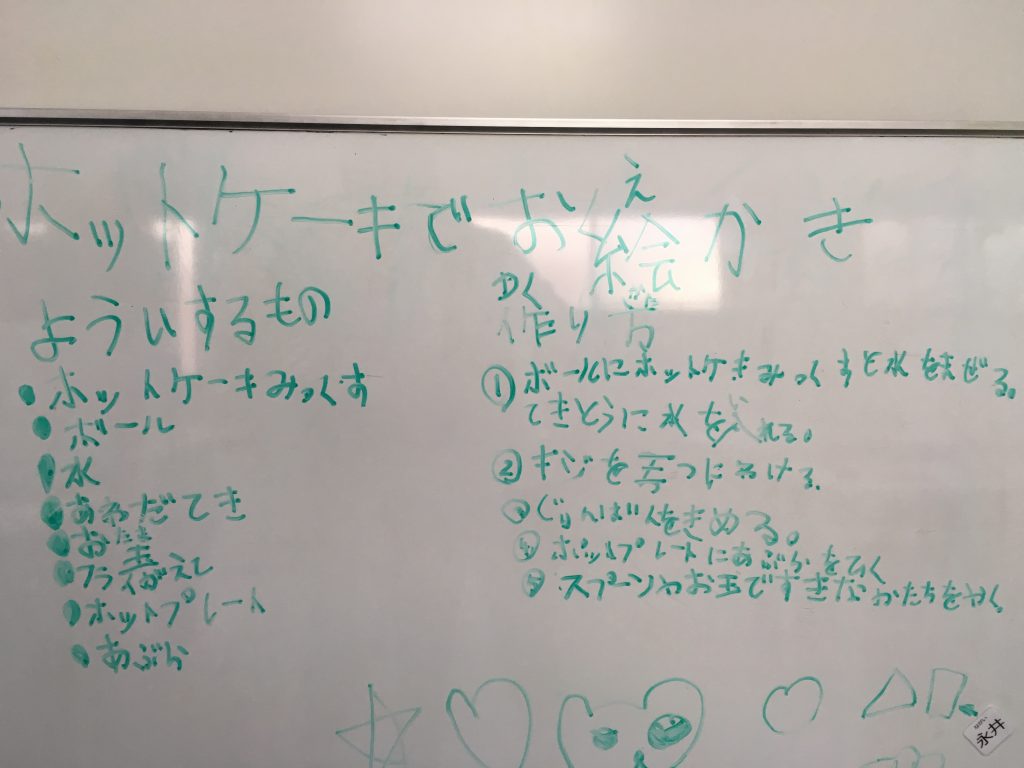 ホットケーキでお絵かき
え
よういするもの
・ホットケーキみっくす
・ボール
・水
・あわだてき
・お玉
たま
・フライがえし
・ホットプレート
・あぶら
つく　かた
作り方
①ボールにホットケーキみっくすと水をまぜる。
てきとうに水を入れる。
い
②キジを三つにわける。
③じゅんばんをきめる。
④ホットプレートにあぶらをひく
⑤スプーンやお玉ですきなかたちをかく。
ながい
永井